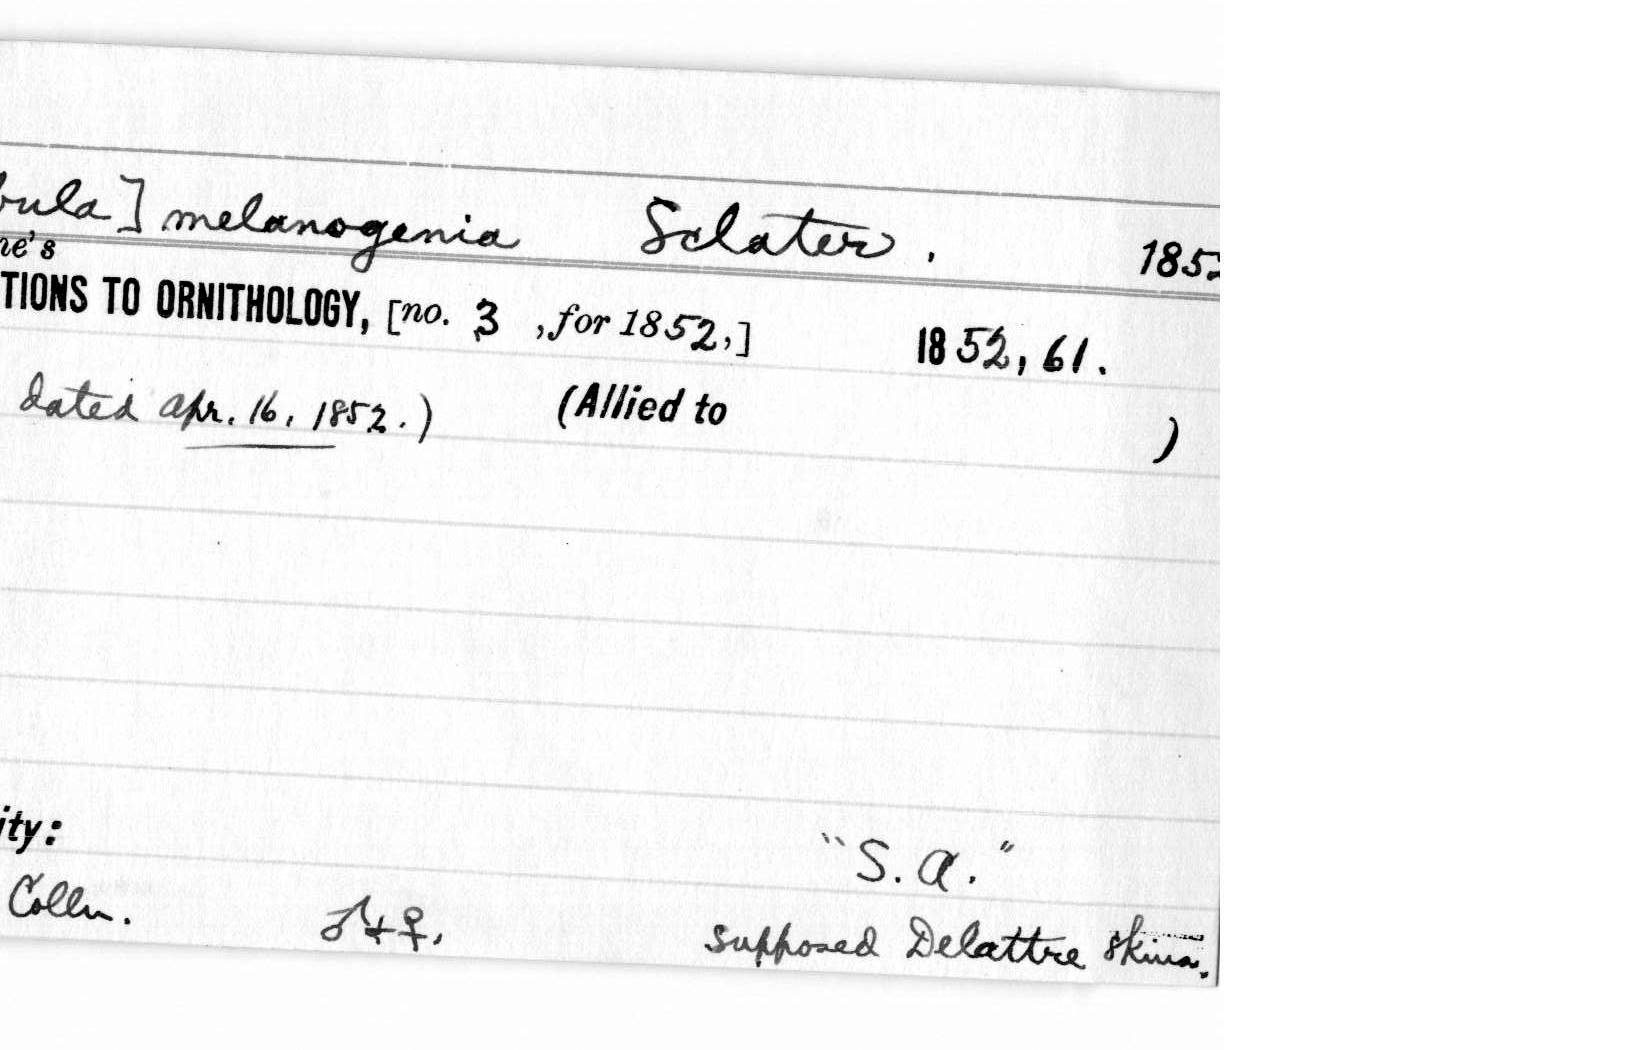 bula] melanogenia Sclater. 1852
ne's
TIONS TO ORNITHOLOGY, [no. 3 , for 1852,] 1852, 61.
dated apr. 16, 1852.) (Allied to )
ity: "S.A."
Colln. ♂+♀, supposed Delattre skins.